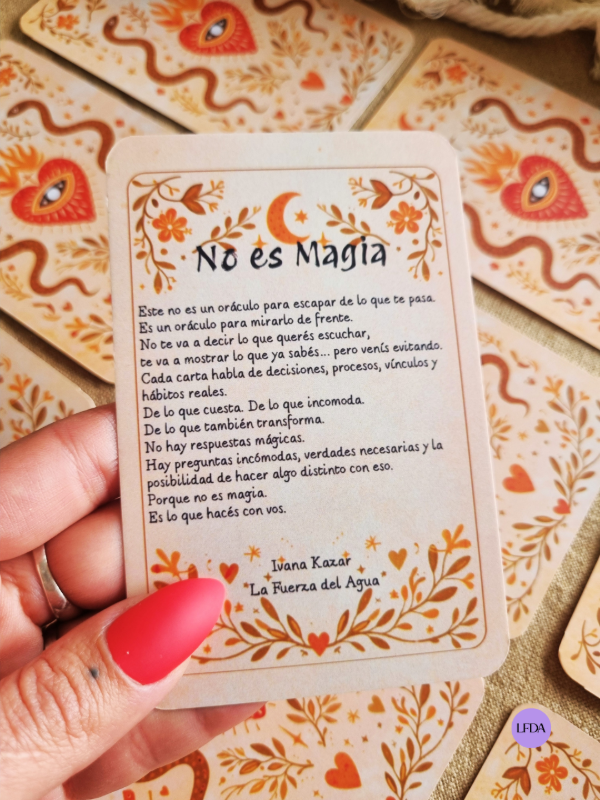 No es Magia
Este no es un oráculo para escapar de lo que te pasa.
Es un oráculo para mirarlo de frente.
No te va a decir lo que querés escuchar,
te va a mostrar lo que ya sabés... pero venís evitando.
Cada carta habla de decisiones, procesos, vínculos y
hábitos reales.
De lo que cuesta. De lo que incomoda.
De lo que también transforma.
No hay respuestas mágicas.
Hay preguntas incómodas, verdades necesarias y la
posibilidad de hacer algo distinto con eso.
Porque no es magia.
Es lo que hacés con vos.
Ivana Kazar
La Fuerza del Agua
LFDA